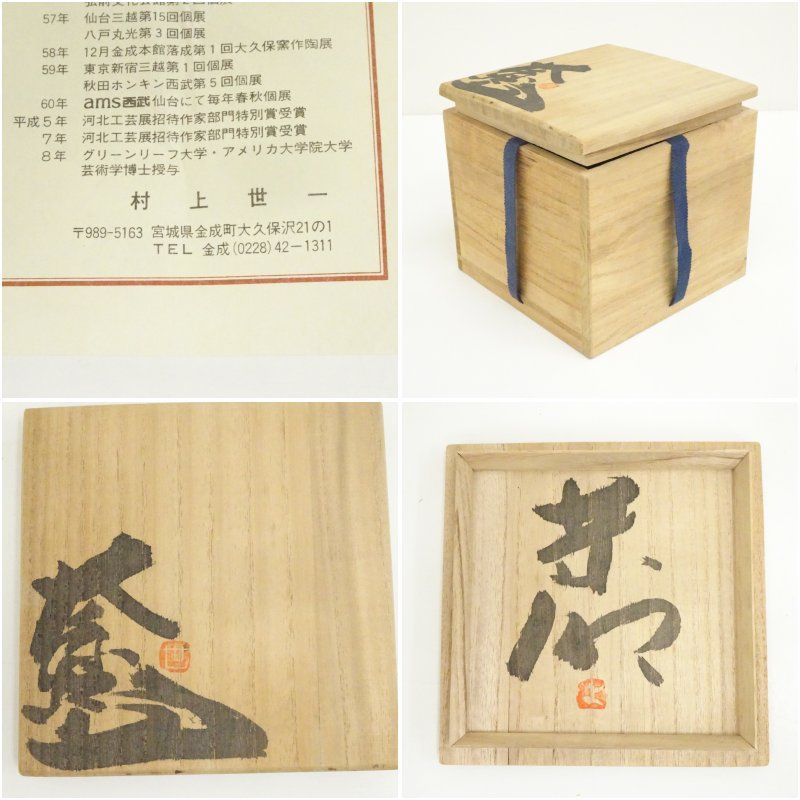 弘前文化会館第2回個展
57年 仙台三越第15回個展
八戸丸光第3回個展
58年 12月金成本館落成第1回大久保窯作陶展
59年 東京新宿三越第1回個展
秋田ホンキン西武第5回個展
60年 ams西武仙台にて毎年春秋個展
平成5年 河北工芸展招待作家部門特別賞受賞
7年 河北工芸展招待作家部門特別賞受賞
8年 グリーンリーフ大学・アメリカ大学院大学
芸術学博士授与
村上世一
〒989-5163 宮城県金成町大久保沢21の1
TEL 金成(0228)42-1311